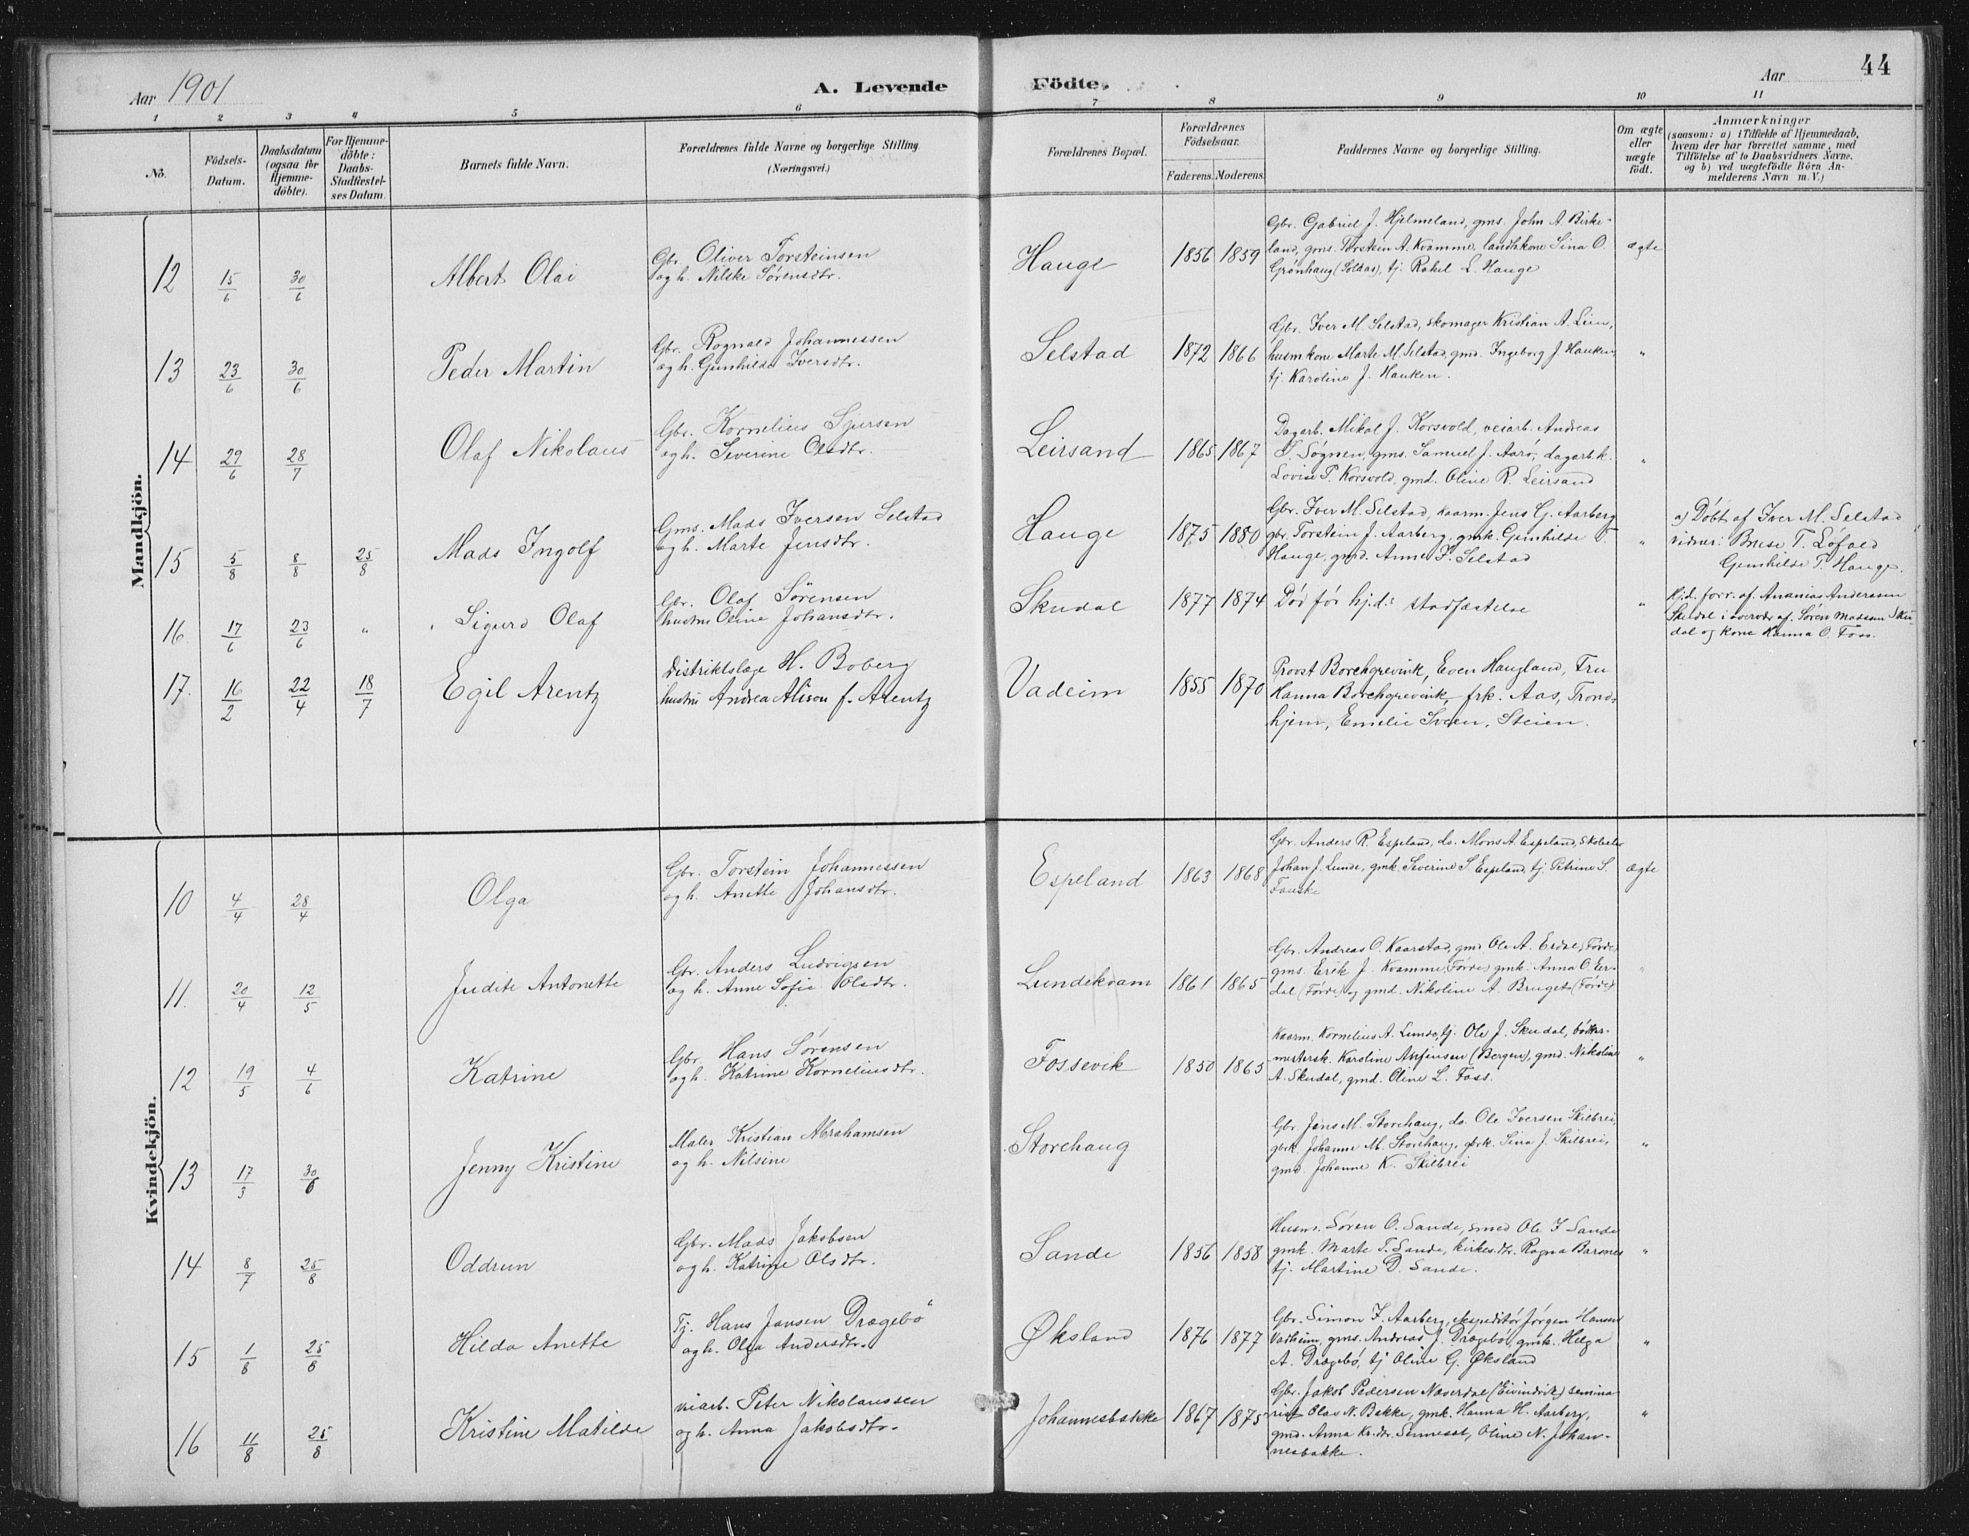 Aar 1901
A. Levende Födte.
Aar
44
1 2 3 4 5 6 7 8 9 10 11
No.
Födsels-Datum.
Daabsdatum (ogsaa for Hjemme-döbte).
For Hjemme-döbte: Daabs-Stadfæstel-ses Datum.
Barnets fulde Navn.
Forældrenes fulde Navne og borgerlige Stilling (Næringsvei.)
Forældrenes Bopæl.
Forældrenes Födselsaar.
Faderens. Moderens.
Faddernes Navne og borgerlige Stilling.
Om ægte eller uægte födt.
Anmærkninger
(saasom: a) i Tilfælde af Hjemmedaab, hvem der har forrettet samme, med Tilföielse af to Daabsvidners Navne, og b) ved uægtefödte Börn An-melderens Navn m. V.)
Mandkjön.
12 15/6 30/6 Albert Olai
Gbr. Oliver Torsteinsen
og h. Nilske Sørensdtr.
Hauge 1856 1859
Gbr. Gabriel J. Hjelmeland, gms. John A. Birke-
land, gms. Torstein A. Kvamme, landhkone Sina O.
Grønhaug (Solbas), tj. Rakel L. Hauge
ægte
13 23/6 30/6 Peder Martin
Gbr. Rognald Johannessen
og h. Gunhilda Iversdtr.
Selstad 1872 1866
Gbr. Iver M. Selstad, skomager Kristian A. Lein,
husmkone Marte M. Selstad, gmd. Ingeborg J. Hauken,
tj. Karoline J. Hauken.
"
14 29/6 28/7 Olaf Nikolaus
Gbr. Kornelius Sjursen
og h. Severine Olsdtr.
Leirsand 1865 1867
Dagarb. Mikal J. Korsvold, veiarb. Andreas
S. Søgnen, gms. Samuel J. Aarø, dagarb.k.
Lovise P. Korsvold, gmd. Oline R. Leirsand
"
15 5/8 8/8 25/8 Mads Ingolf
Gms. Mads Iversen Selstad
og h. Marte Jensdtr.
Hauge 1875 1880
Gbr. Iver M. Selstad, kaarm. Jens G. Aarberg
gbr. Torstein J. Aarberg, gmk. Gunhilde T.
Hauge, gmd. Anne P. Selstad
"
a) Døbt af Iver M. Selstad
vidner: Brese T. Løfald
Gunhilde T. Hauge.
16. 17/6 23/6 " Sigurd Olaf
Gbr. Olaf Sørensen
hustru Oline Johansdtr.
Skudal 1877 1874
Død før hj.d.s stadfæstelse
"
Hj.d. forr. af Ananias Andersen
Skildal i overvær af Søren Madsen Sku-
dal og kone Hanna O. Foss.
17. 16/2 22/4 18/7 Egil Arentz
Distriktslæge H. Boberg
hustru Andrea Alison f. Arentz
Vadeim 1855 1870
Provst Borchgrevink, Even Haugland, Fru
Hanna Borchgrevink, frk. Aas, Trond-
hjem, Emelie Sven, Steien.
Kvindekjön.
10 4/4 28/4 Olga
Gbr. Torstein Johannessen
og h. Anette Johansdtr.
Espeland 1863 1868
Gbr. Anders R. Espeland, do. Mons A. Espeland, skolelær
Johan J. Lunde, gmk. Severine S. Espeland, tj. Petrine S.
Fauske
ægte
11. 20/4 12/5 Judite Antonette
Gbr. Anders Ludvigsen
og h. Anne Sofie Olsdtr.
Lundekvam 1861 1865
Gbr. Andreas O. Kaarstad, gmd Ole A. Erdal (Førde)
gms. Erik J. Kvamme (Førde) gmk. Anna O. Er-
dal (Førde) og gmd. Nikoline A. Bruget (Førde)
"
12 19/5 4/6 Katrine
Gbr. Hans Sørensen
og h. Katrine Korneliusdtr.
Fossevik 1850 1865
Kaarm. Kornelius A. Lunde, tj. Ole J. Skudal, bøtter-
mestersk. Karoline Anfinsen (Bergen), gmd. Nikoline
A. Skudal, gmd. Oline L. Foss.
"
13 17/3 30/6 Jenny Kristine
Maler Kristian Abrahamsen
og h. Nilsine
Storehaug
Gbr. Jens M. Storehaug, do. Ole Iversen Skilbrei,
gbrk. Johanne M. Storehaug, gbrk. Sina J. Skilbrei,
gmd. Johanne K. Skilbrei
"
14 8/7 25/8 Oddrun
Gbr. Mads Jakobsen
og h. Katrine Olsdtr.
Sande 1856 1858
Husm. Søren O. Sande, smed Ole J. Sande
gmk. Marte T. Sande, kirkes.dtr. Ragna Barones
tj. Martine D. Sande.
"
15 1/8 25/8 Hilda Anette
Tj. Hans Jansen Drægebø
og h. Olga Andersdtr.
Øksland 1876 1877
Gbr. Simon F. Aarberg, ekspeditør Jørgen Hansen
Vadheim, gms. Andreas J. Drægebø, gmk. Helga
A. Drægebø, tj Oline G. Øksland
"
16 11/8 25/8 Kristine Matilde
veiarb. Peter Nikolaussen
og h. Anna Jakobsdtr.
Johannesbakke 1867 1875
Gbr. Jakob Pedersen Næverdal (Eivindvik) semina-
rist Olav N. Bakke, gmk. Hanna H. Aarberg,
gmd. Anna Kr.dtr. Sunneset, Oline N. Johan-
nesbakke.
"